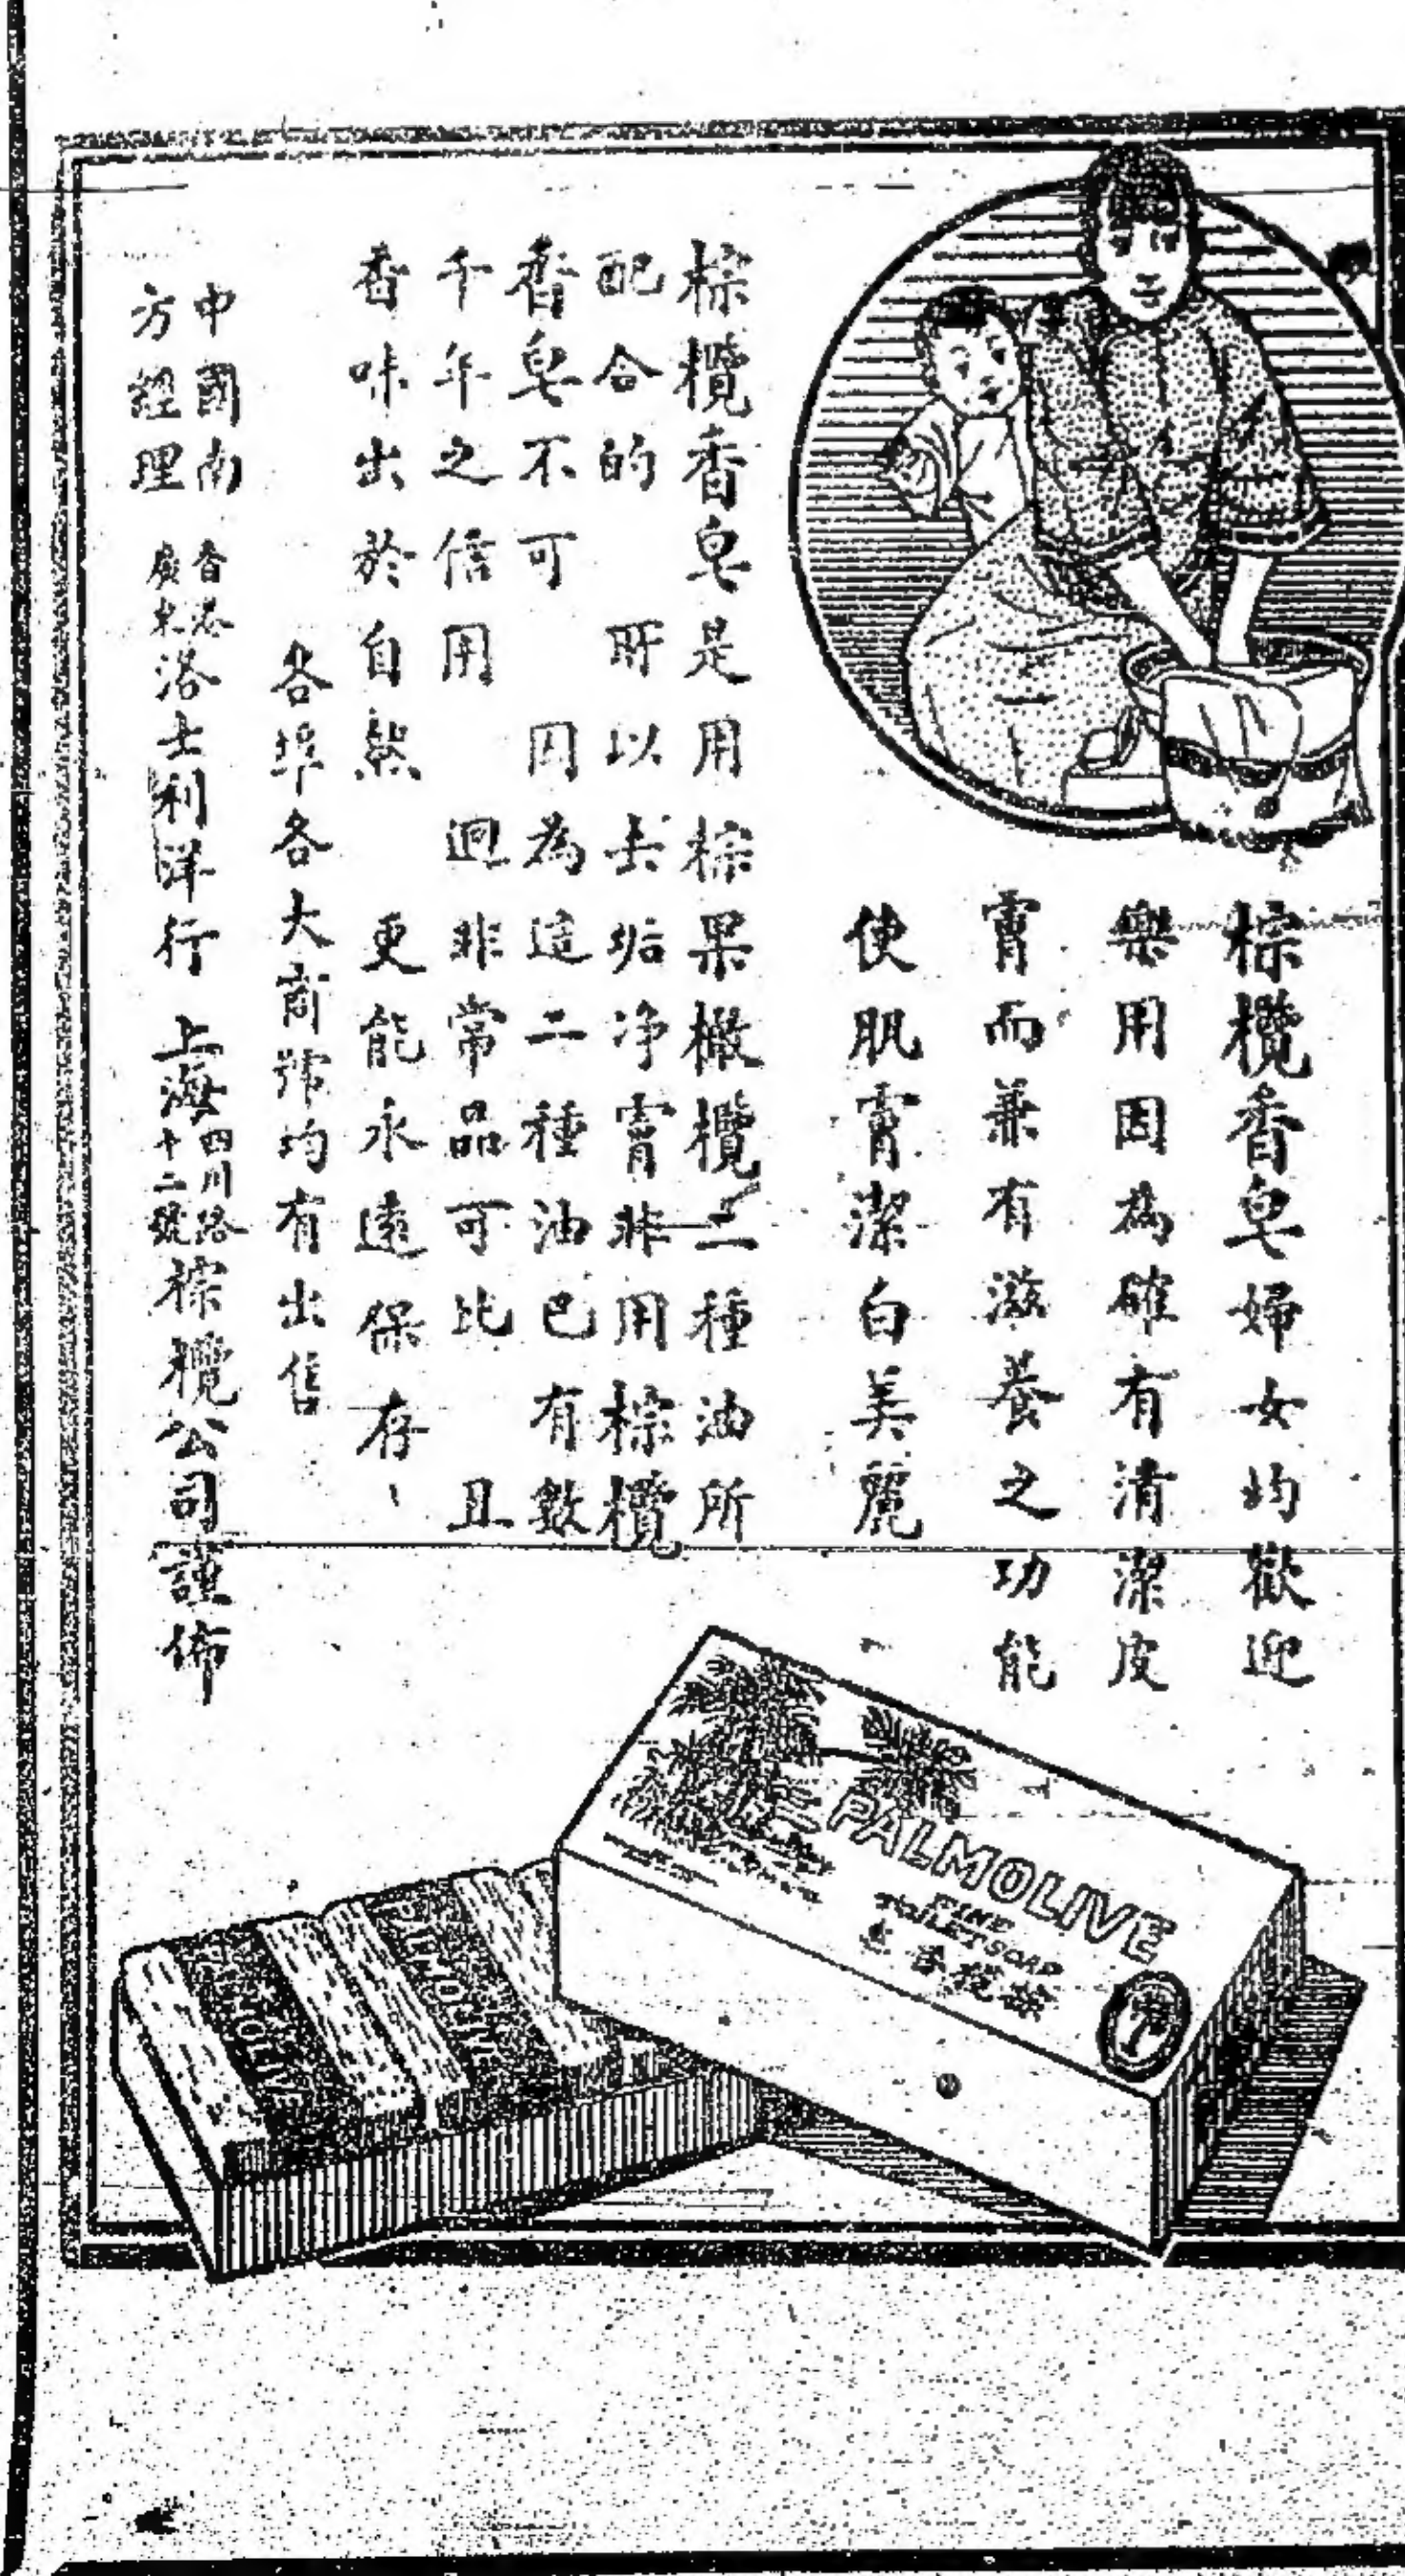 棕欖香皂婦女均歡迎
樂用因為確有清潔皮
膚而兼有滋養之功能
使肌膚潔白美麗
棕欖香皂是用棕果橄欖二種油所
配合的 所以去垢净膚非用棕欖
香皂不可 因為這二種油已有數
千年之信用 迥非常品可比 且
香味出於自然 更能永遠保存、
各埠各大商號均有出售
中國南方經理 香港廣東洛士利洋行 上海四川路十二號棕欖公司謹佈
PALMOLIVE
FINE
TOILET SOAP
皂香欖棕
PALMOLIVE
PALMOLIVE